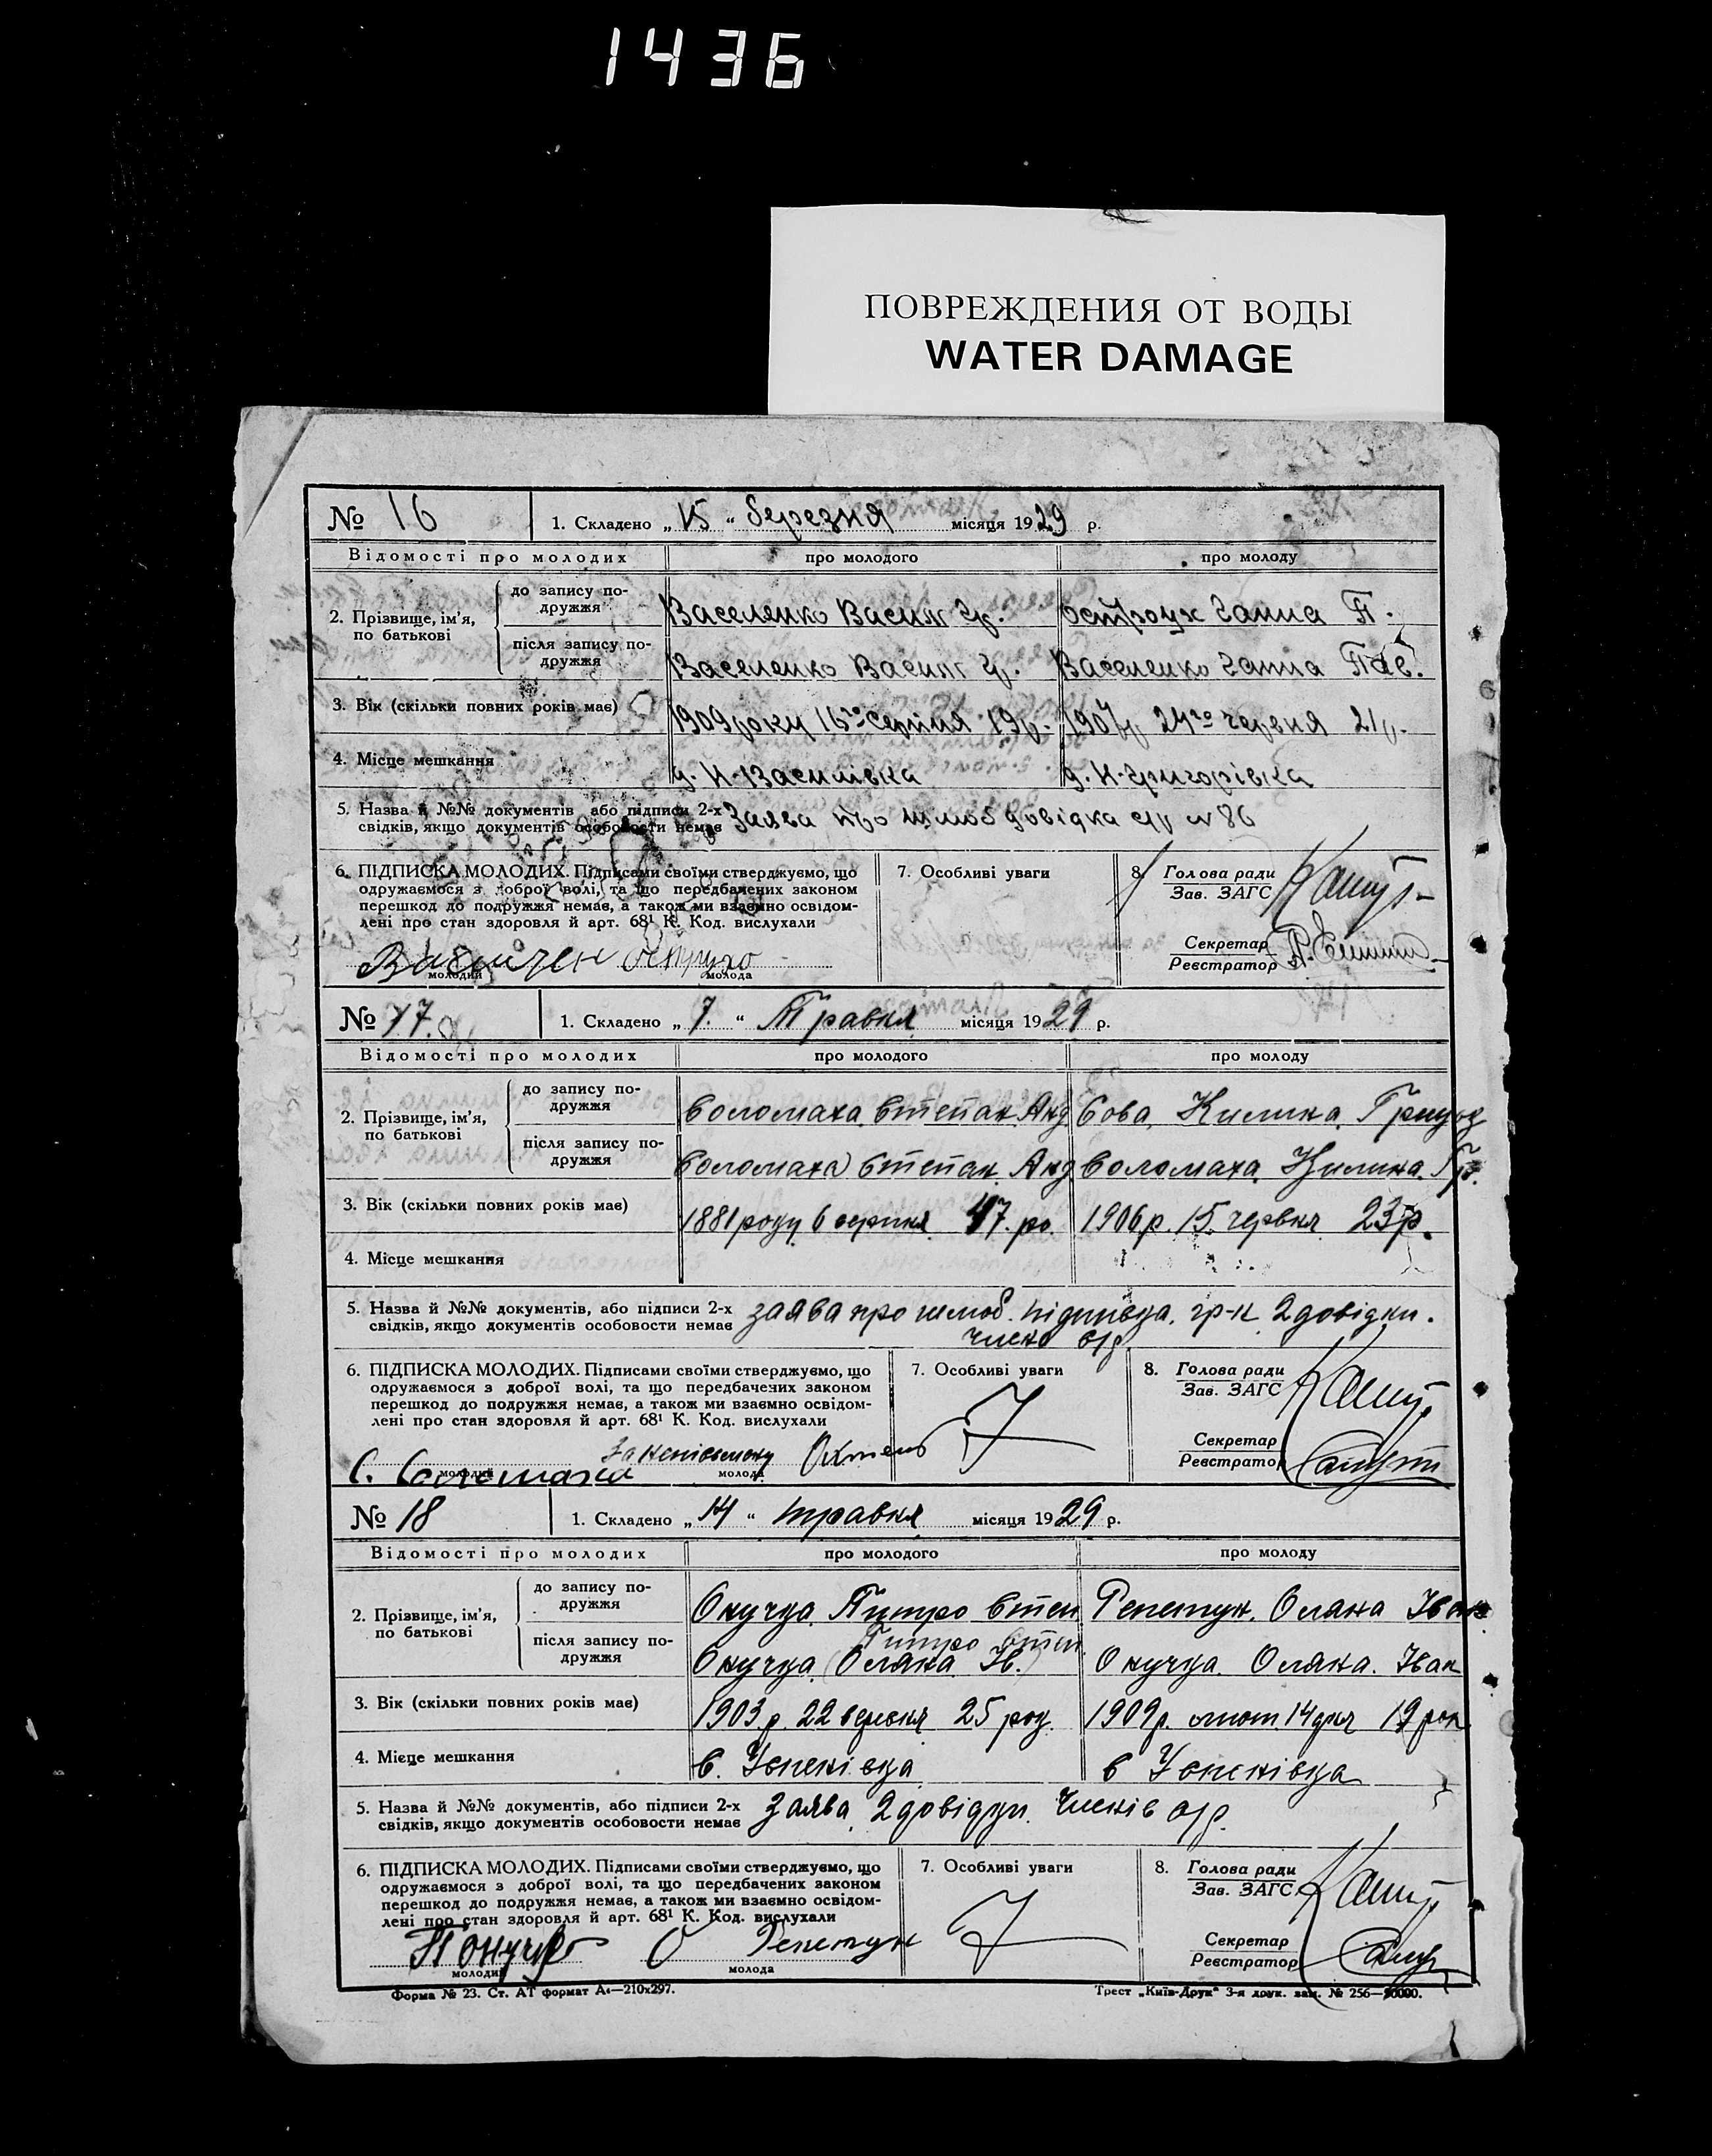 1436
ПОВРЕЖДЕНИЯ ОТ ВОДЫ
WATER DAMAGE
№ 16 1. Складено „15“ березня місяця 1929 р.
Відомості про молодих про молодого про молоду
2. Прізвище, ім'я, по батькові
до запису подружжя Васеленко Василь Гр. Остроух Ганна П.
після запису подружжя Васеленко Василь Гр. Васеленко Ганна Пав.
3. Вік (скільки повних років має) 1909 року 16го серпня 19р. 1907р 24го червня 21р.
4. Місце мешкання д. Н-Василівка д. Н-Григорівка
5. Назва й №№ документів або підписи 2-х Заява про шлюб довідка с/р № 86
свідків, якщо документів особовости немає
6. ПІДПИСКА МОЛОДИХ. Підписами своїми стверджуємо, що
одружаємося з доброї волі, та що передбачених законом
перешкод до подружжя немає, а також ми взаємно освідом-
лені про стан здоровля й арт. 68¹ К. Код. вислухали
молодий молода
7. Особливі уваги
8. Голова ради
Зав. ЗАГС
Секретар
Реєстратор
№ 17. 1. Складено „7.“ Травня місяця 1929 р.
Відомості про молодих про молодого про молоду
2. Прізвище, ім'я, по батькові
до запису подружжя Соломаха Степан Анд Сова, Килина Григор
після запису подружжя Соломаха Степан Анд Соломаха Килина Гр.
3. Вік (скільки повних років має) 1881 року 6 серпня 47. ро. 1906 р. 15 червня 23 р.
4. Місце мешкання
5. Назва й №№ документів, або підписи 2-х заява про шлюб. підписка, гр-н 2 довідки.
свідків, якщо документів особовости немає с/р.
6. ПІДПИСКА МОЛОДИХ. Підписами своїми стверджуємо, що
одружаємося з доброї волі, та що передбачених законом
перешкод до подружжя немає, а також ми взаємно освідом-
лені про стан здоровля й арт. 68¹ К. Код. вислухали
С. Соломаха
молодий молода
7. Особливі уваги
8. Голова ради
Зав. ЗАГС
Секретар
Реєстратор
№ 18 1. Складено „14“ травня місяця 1929 р.
Відомості про молодих про молодого про молоду
2. Прізвище, ім'я, по батькові
до запису подружжя Онучка Питро Степ Репетун. Оляна Іван
Питро Степ
після запису подружжя Онучка (Оляна Ів.) Онучка. Оляна. Іван
3. Вік (скільки повних років має) 1903 р. 22 вересня 25 рок. 1909 р. лют 14 дня 19 рок
4. Місце мешкання с. Успенівка с Успенівка
5. Назва й №№ документів, або підписи 2-х Заява, 2 довідки. Членів с/р.
свідків, якщо документів особовости немає
6. ПІДПИСКА МОЛОДИХ. Підписами своїми стверджуємо, що
одружаємося з доброї волі, та що передбачених законом
перешкод до подружжя немає, а також ми взаємно освідом-
лені про стан здоровля й арт. 68¹ К. Код. вислухали
П Онучко О Репетун
молодий молода
7. Особливі уваги
8. Голова ради
Зав. ЗАГС
Секретар
Реєстратор
Форма № 23. Ст. АТ формат А₄—210x297. Трест „Київ-Друк“ 3-я друк. зам. № 256—